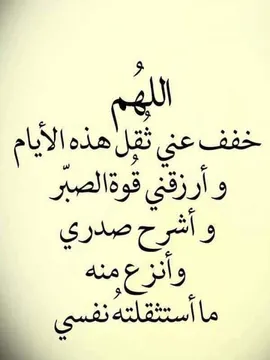 اللهُم
خفف عني ثُقل هذه الأيام
و أرزقني قُوة الصبّر
و أشرح صدري
وأنزع منه
ما أستثقلتهُ نفسي